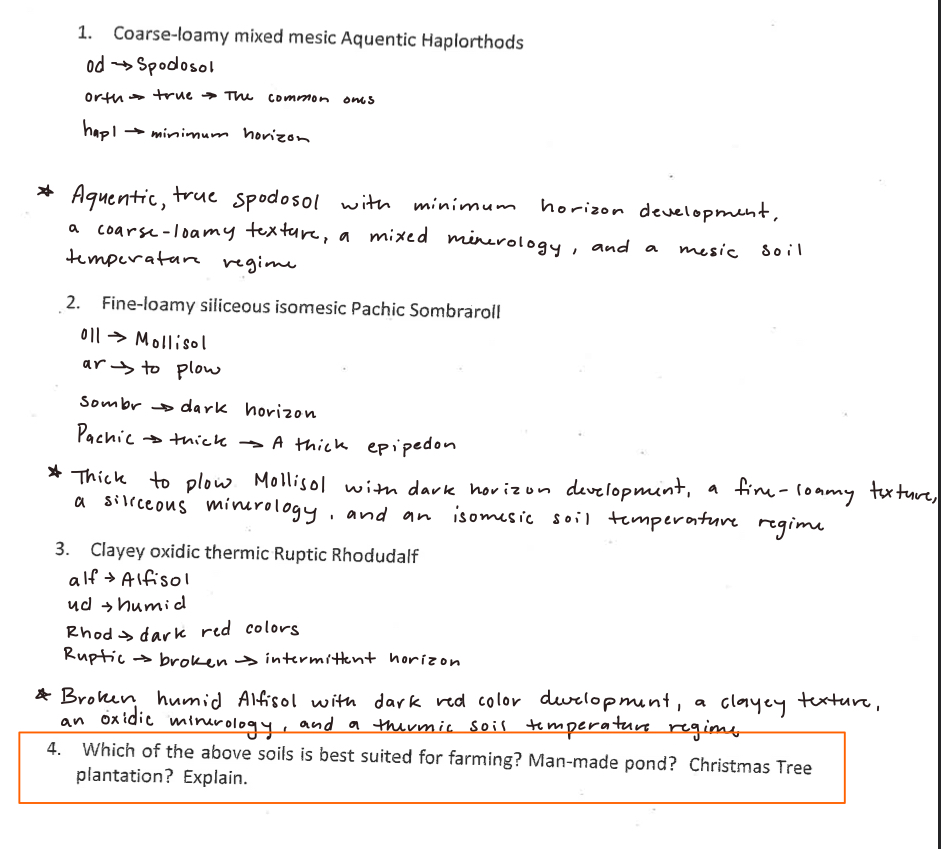 1. Coarse-loamy mixed mesic Aquentic Haplorthods
od → Spodosol
orth → true → The common ones
hapl → minimum horizon
* Aquentic, true spodosol with minimum horizon development,
a coarse-loamy texture, a mixed minerology, and a mesic soil
temperature regime
2. Fine-loamy siliceous isomesic Pachic Sombraroll
oll → Mollisol
ar → to plow
Sombr → dark horizon
Pachic → thick → A thick epipedon
* Thick to plow Mollisol with dark horizon development, a fine-loamy texture,
a silicceous minerology, and an isomesic soil temperature regime
3. Clayey oxidic thermic Ruptic Rhodudalf
alf → Alfisol
ud → humid
Rhod → dark red colors
Ruptic → broken → intermittent horizon
* Broken humid Alfisol with dark red color development, a clayey texture,
an oxidic minerology, and a thermic soil temperature regime
4. Which of the above soils is best suited for farming? Man-made pond? Christmas Tree
plantation? Explain.